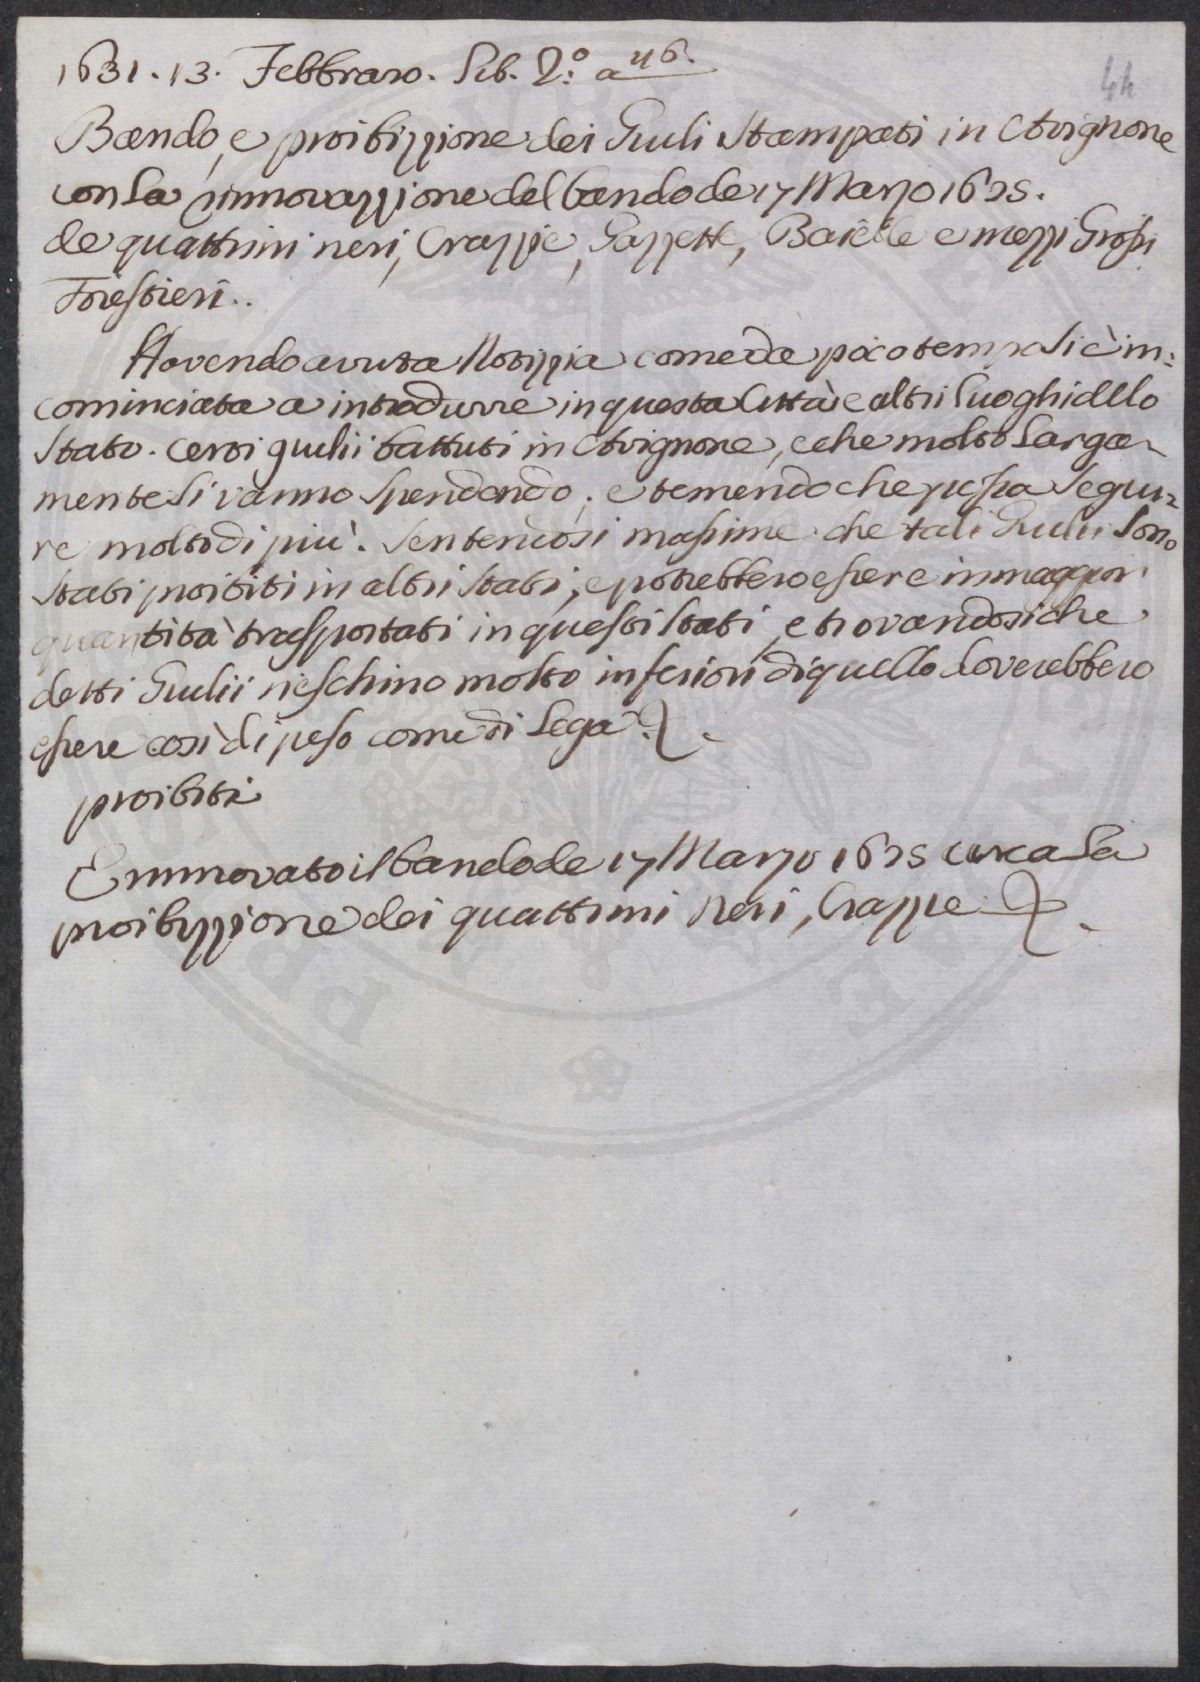 44
1631. 13. Febbraro. Lib. 2.° a 46.
Bando, e proibizzione dei Giuli Stampati in Avignone
con la rinnovazzione del bando de 17 Marzo 1625.
de quattrini neri, Crazzie, Gazzette, Baielle e mezzi Grossi
Forestieri..
Havendo avuta Notizzia come da poco tempo si è in:
cominciata a introdurre in questa Città e altri Luoghi dello
Stato. Certi giulii battuti in Avignone, e che molto larga-
mente si vanno Spendendo, e temendo che possa Segui-
re molto di più. Sentendosi massime che tali Giulii Sono
Stati proibiti in altri Stati, e potrebbero essere in maggior
quantità trasportati in questi Stati, e trovandosi che
detti Giulii rieschino molto inferiori di quello doverebbero
essere così di peso come di Lega.
proibiti
E rinnovato il bando de 17 Marzo 1625 circa la
proibizzione dei quattrini Neri, Crazzie